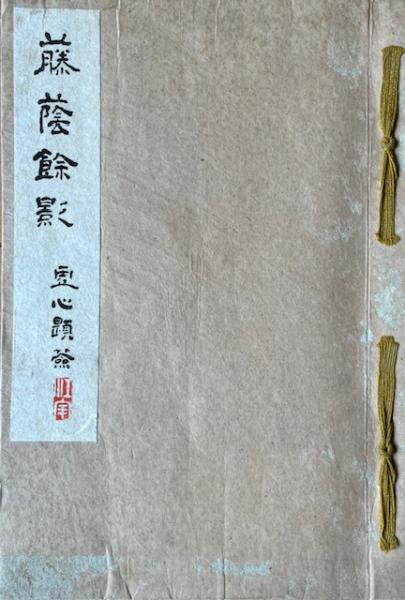 藤蔭餘影
虚心題簽